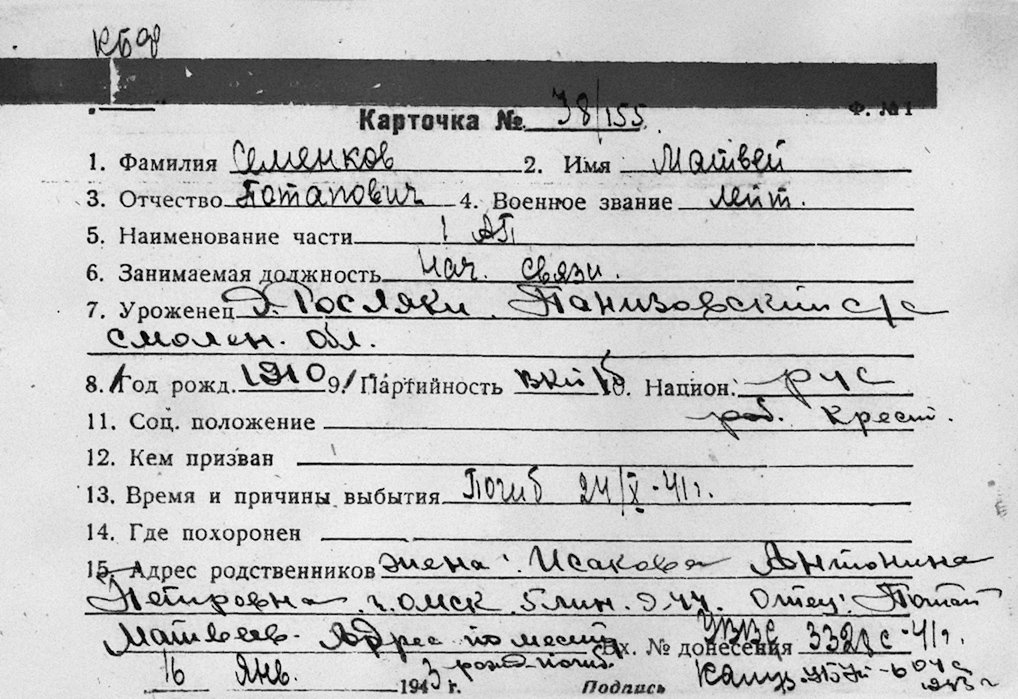 КБФ
Ф. № 1
Карточка № 38/155.
1. Фамилия Семенков 2. Имя Матвей
3. Отчество Потапович 4. Военное звание лейт.
5. Наименование части 1 АП
6. Занимаемая должность Нач. связи.
7. Уроженец д. Росляки Панизовский с/с
Смолен. обл.
8. Год рожд. 1910 9. Партийность ВКП/б 10. Национ. рус
11. Соц. положение раб. крест.
12. Кем призван
13. Время и причины выбытия Погиб 24/X-41г.
14. Где похоронен
15. Адрес родственников жена: Исакова Антонина
Петровна г. Омск 5 лин. д. 44. Отец: Потап
Матвеев. Адрес по месту
Вх. № донесения с-41г.
рожд.
16 Янв. 1943 г. Подпись